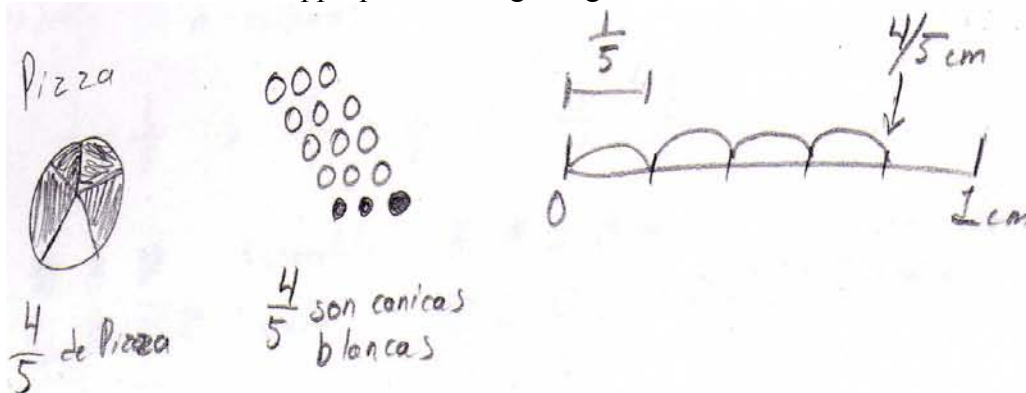 Pizza
4/5 de Pizza
4/5 son canicas
blancas
1/5
4/5 cm
0
1 cm